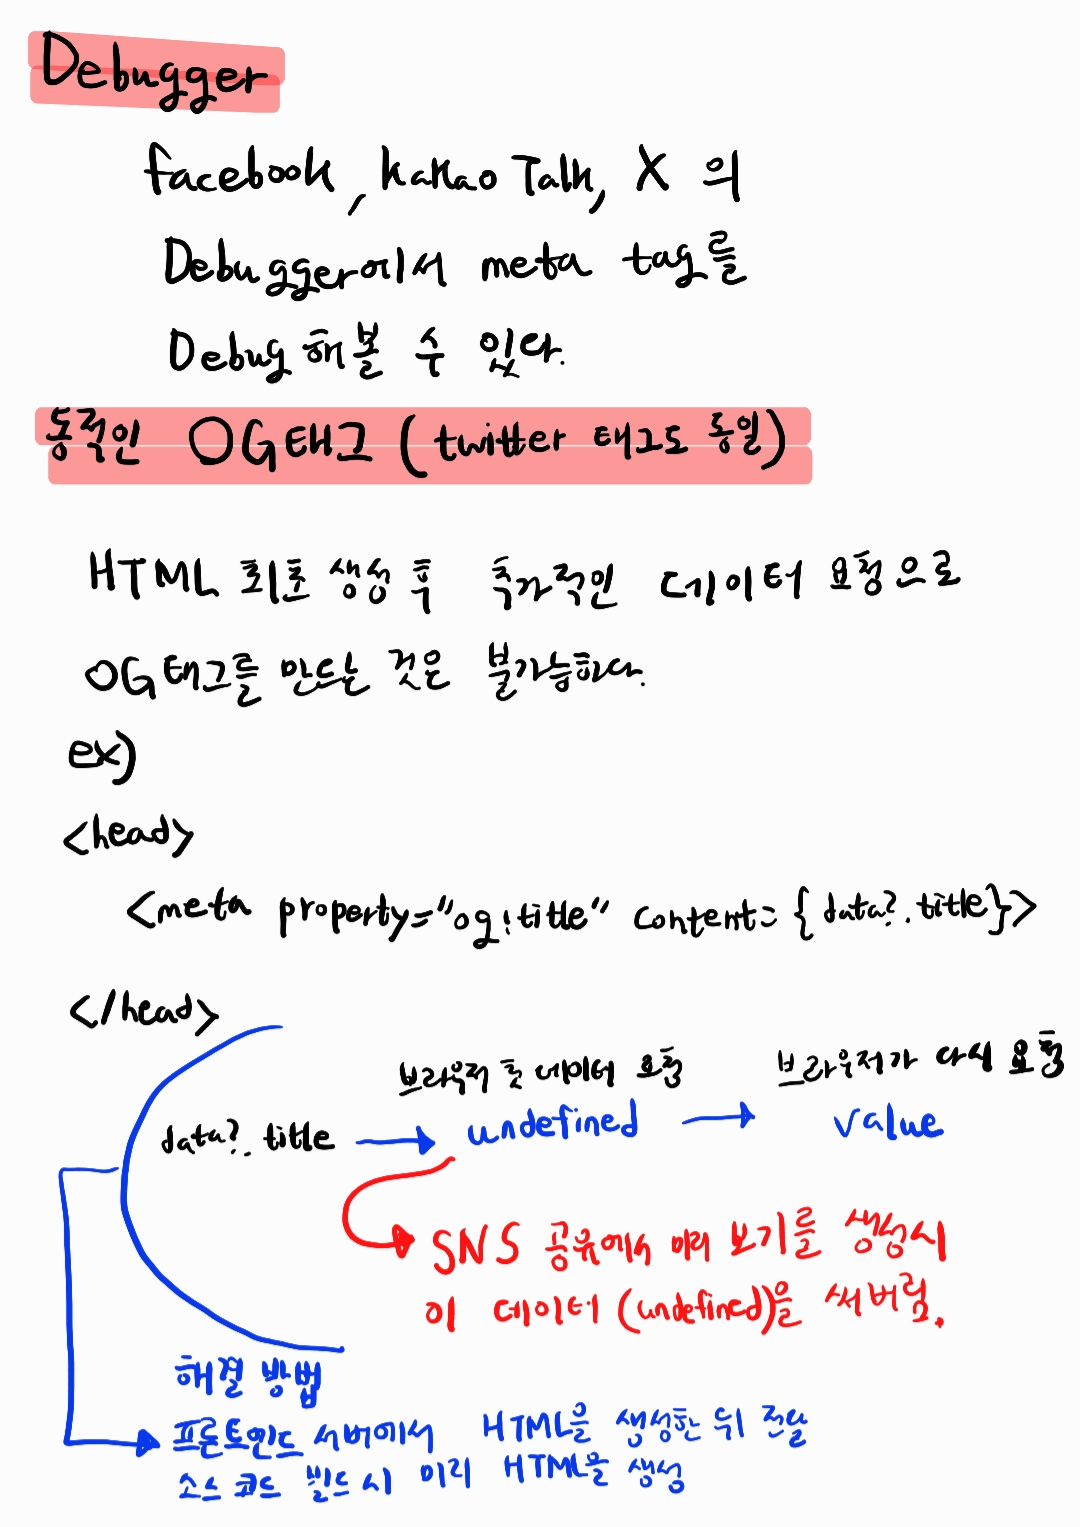 Debugger
facebook, kakao Talk, X 의
Debugger에서 meta tag를
Debug 해볼 수 있다.
동적인 OG태그 (twitter 태그도 동일)
HTML 최초 생성 후 추가적인 데이터 요청으로
OG태그를 만드는 것은 불가능하다.
ex)
<head>
<meta property="og:title" content={data?.title}>
</head>
브라우저 첫 데이터 요청 브라우저가 다시 요청
data?.title → undefined → value
SNS 공유에서 미리 보기를 생성시
이 데이터 (undefined)을 써버림.
해결 방법
프론트엔드 서버에서 HTML을 생성한 뒤 전달
소스 코드 빌드 시 미리 HTML을 생성